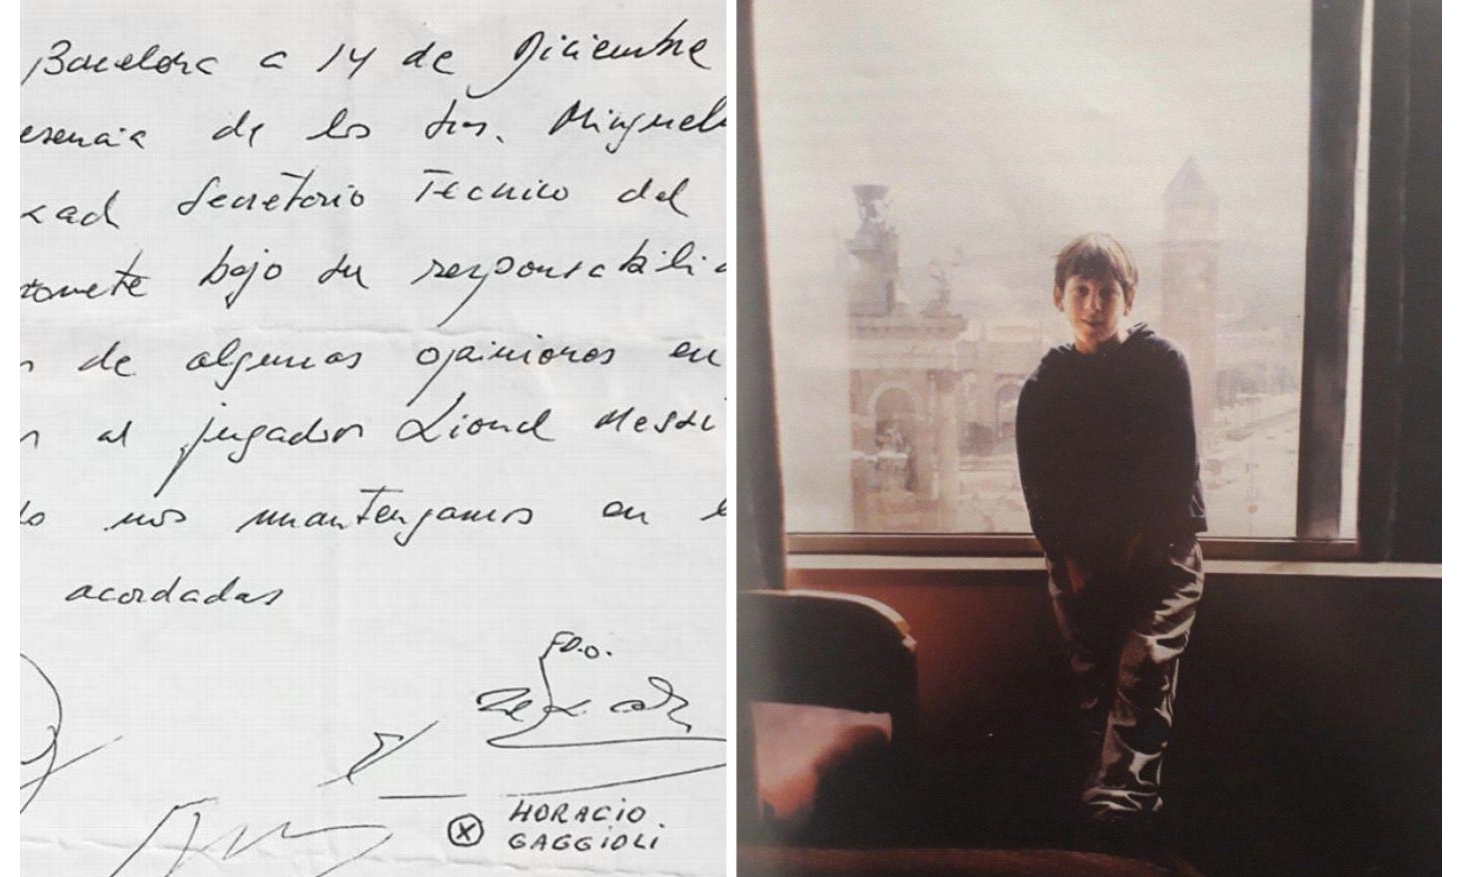 Barcelona a 14 de Diciembre
esencia de los Srs. Minguella
xad Secretario Tecnico del
romete bajo su responsabilid
n de algunas opiniones en
n al jugador Lionel Messi
do nos mantengamos en l
acordadas
FDO.
HORACIO
GAGGIOLI